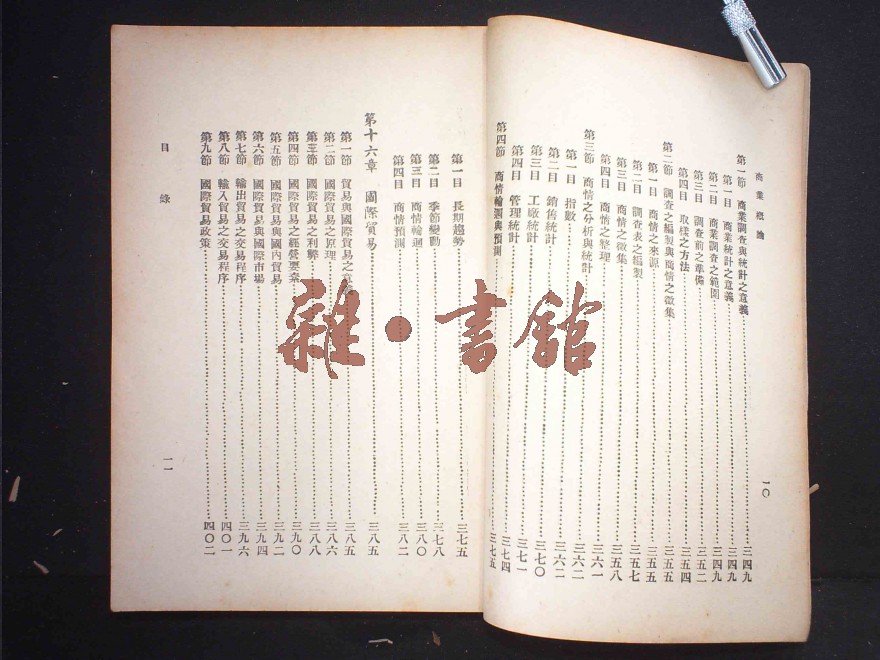 商業概論
第一節 商業調查與統計之意義 三四九
第一目 商業統計之意義 三四九
第二目 商業調查之範圍 三四九
第三目 調查前之準備 三五二
第四目 取樣之方法 三五四
第二節 調查之編製與商情之徵集 三五五
第一目 商情之來源 三五五
第二目 調查表之編製 三五七
第三目 商情之徵集 三五八
第四目 商情之整理 三六一
第三節 商情之分析與統計 三六二
第一目 指數 三六二
第二目 銷售統計 三七〇
第三目 工廠統計 三七一
第四目 管理統計 三七四
第四節 商情輪迴與預測 三七五
一〇
第一目 長期趨勢 三七五
第二目 季節變動 三七八
第三目 商情輪迴 三八〇
第四目 商情預測 三八二
第十六章 國際貿易 三八五
第一節 貿易與國際貿易之意義 三八五
第二節 國際貿易之原理 三八六
第三節 國際貿易之利弊 三八八
第四節 國際貿易之經營要素 三九〇
第五節 國際貿易與國內貿易 三九二
第六節 國際貿易與國際市場 三九四
第七節 輸出貿易之交易程序 三九六
第八節 輸入貿易之交易程序 四〇一
第九節 國際貿易政策 四〇二
目錄
一一
雜·書館